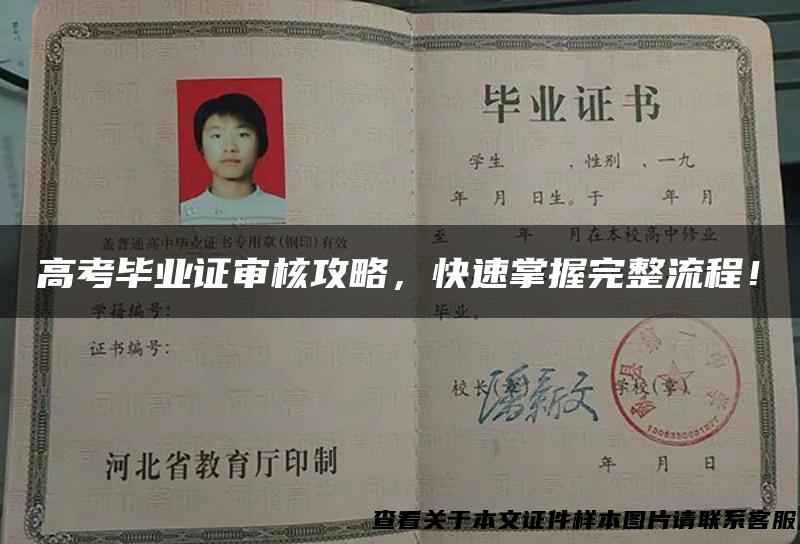 毕业证书
学生 ,性别 ,一九
年 月 日生。于 年 月
至 年 月在本校高中修业
盖普通高中毕业证书专用章(钢印)有效
高考毕业证审核攻略，快速掌握完整流程！
学籍编号：
毕业。
证书编号：
校长(章) 学校(章)
潘新文
县第一中
河北省教育厅印制
年 月 日
查看关于本文证件样本图片请联系客服